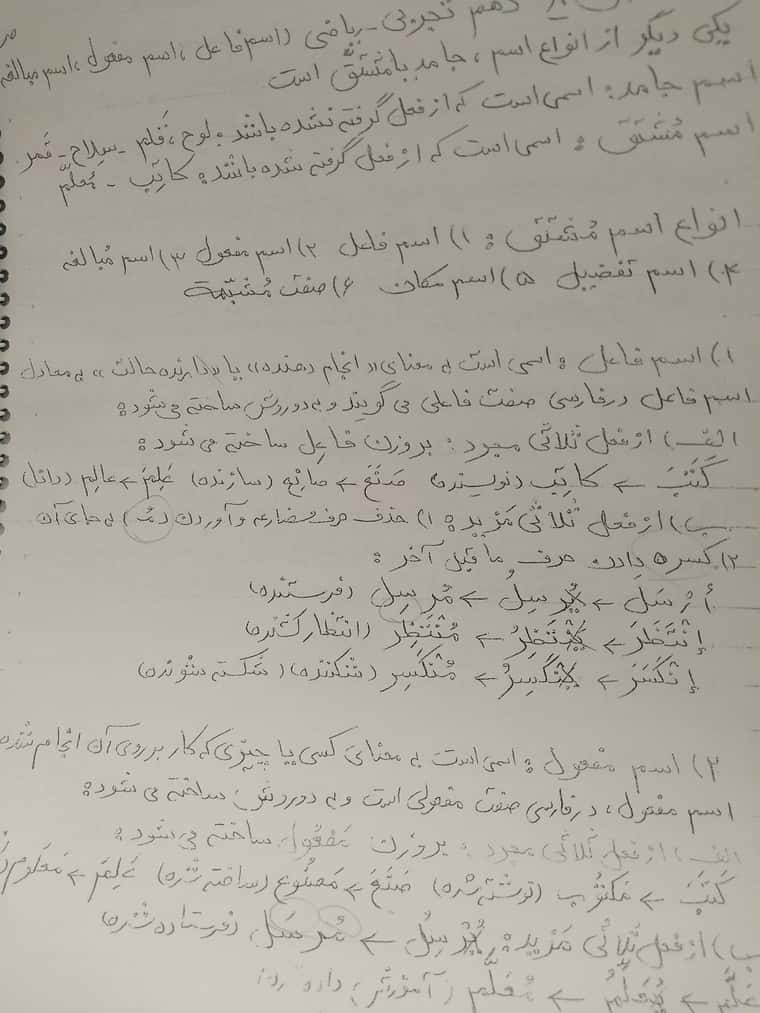 دهم تجربی - ریاضی (اسم فاعل، اسم مفعول، اسم مبالغه
یکی دیگر از انواع اسم، جامد یا مُشتَقّ است
اسم جامد: اسمی است که از فعل گرفته نشده باشد: لوح، قَلَم - سِلاح - قَمَر
اسم مُشتَقّ: اسمی است که از فعل گرفته شده باشد: کاتِب - مُعلِّم
انواع اسم مُشتَق: ۱) اسم فاعل ۲) اسم مفعول ۳) اسم مُبالغه
۴) اسم تفضیل ۵) اسم مکان ۶) صفت مُشَبّهة
۱) اسم فاعل: اسمی است به معنای «انجام دهنده» یا «دارنده حالت» به معادل
اسم فاعل در فارسی صفت فاعلی می گویند و به دو روش ساخته می شود:
الف) از فعل ثُلاثی مجرد: بر وزن فاعِل ساخته می شود:
کَتَبَ ← کاتِب (نویسنده) صَنَعَ ← صانِع (سازنده) عَلِمَ ← عالِم (دانا)
ب) از فعل ثُلاثی مَزید: ۱) حذف حرف مضارعه و آوردن (مُـ) به جای آن
۲) کسره دادن حرف ما قبل آخر:
أرْسَلَ ← یُرسِلُ ← مُرسِل (فرستنده)
إنْتَظَرَ ← یَنْتَظِرُ ← مُنْتَظِر (انتظار کشنده)
إنْکَسَرَ ← یَنْکَسِرُ ← مُنْکَسِر (شکننده) (شکسته شونده)
۲) اسم مفعول: اسمی است به معنای کسی یا چیزی که کار بر روی آن انجام شده
اسم مفعول، در فارسی صفت مفعولی است و به دو روش ساخته می شود:
الف) از فعل ثلاثی مجرد: بر وزن مَفْعُول ساخته می شود:
کَتَبَ ← مَکتُوب (نوشته شده) صَنَعَ ← مَصنُوع (ساخته شده) عَلِمَ ← مَعلوم
ب) از فعل ثُلاثی مَزید: یُرْسِلُ ← مُرسَل (فرستاده شده)
عَلَّمَ ← یُعَلِّمُ ← مُعَلَّم (آموزش داده